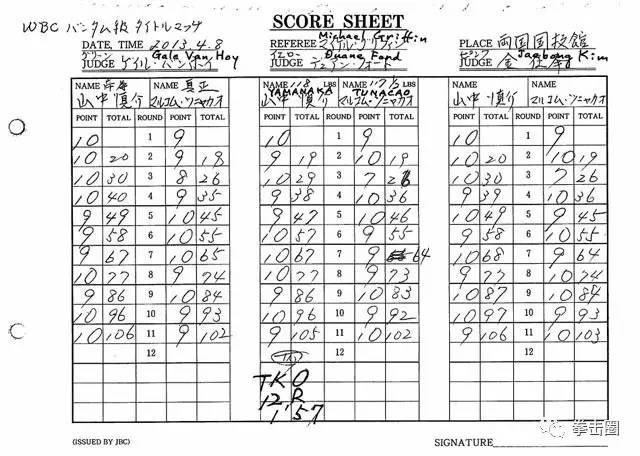 WBC バンタム級 タイトルマッチ
SCORE SHEET
DATE, TIME 2013.4.8
REFEREE Michael Griffin マイケル・グリフィン
PLACE 両国国技館
JUDGE Gale Van Hoy ゲイル・バンホイ
JUDGE Duane Ford デュエイン・フォード
JUDGE Jaebong Kim
NAME 帝拳 山中慎介 NAME 真正 マルコム・ツニャカオ
NAME 118 LBS YAMANAKA 山中慎介 NAME 117 1/2 LBS TUNACAO マルコム・ツニャカオ
NAME 山中慎介 NAME マルコム・ツニャカオ
POINT TOTAL ROUND POINT TOTAL POINT TOTAL ROUND POINT TOTAL POINT TOTAL ROUND POINT TOTAL
10 1 9 10 1 9 10 1 9
10 20 2 9 18 9 19 2 10 19 10 20 2 10 19
10 30 3 8 26 10 29 3 7 26 10 30 3 7 26
10 40 4 9 35 9 38 4 10 36 9 39 4 10 36
9 49 5 10 45 9 47 5 10 46 10 49 5 9 45
9 58 6 10 55 10 57 6 9 55 9 58 6 10 55
9 67 7 10 65 10 67 7 9 64 10 68 7 9 64
10 77 8 9 74 10 77 8 9 73 9 77 8 10 74
9 86 9 10 84 9 86 9 10 83 10 87 9 10 84
10 96 10 9 93 10 96 10 9 92 10 97 10 9 93
10 106 11 9 102 9 105 11 10 102 9 106 11 10 103
12 12 12
TKO
12R
1'57
(ISSUED BY JBC)
SIGNATURE
拳击圈